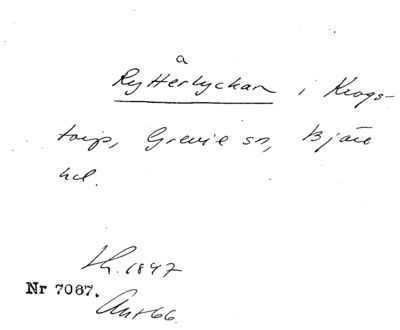 å
Rytterlyckan i Krogs-
torp, Grevie sn, Bjäre
hd.
Lh. 1847
Nr 7067.